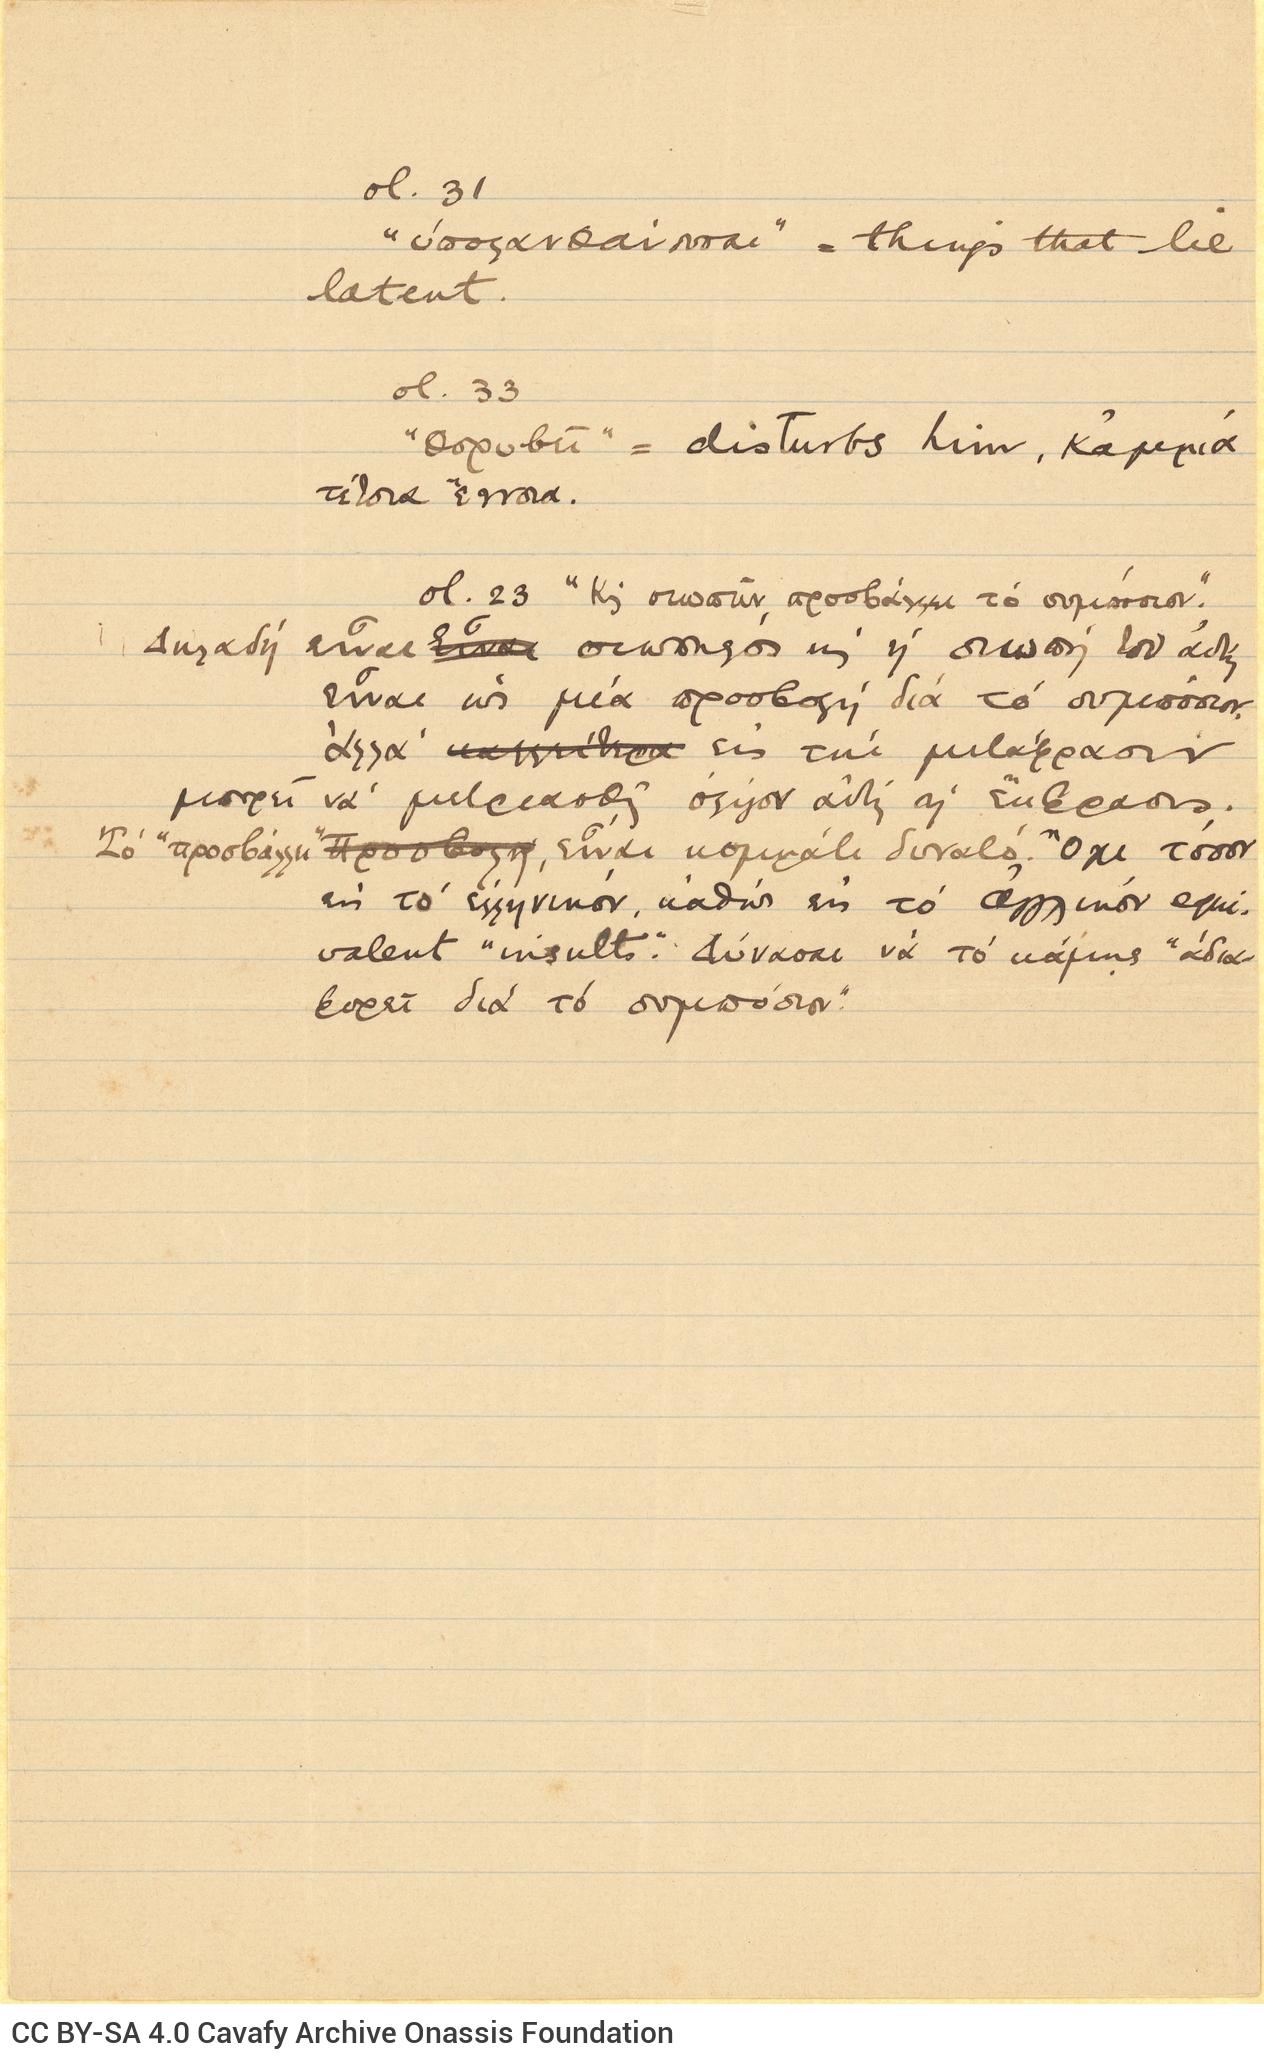 στ. 31
"ὑπολανθάνουσαι" = things that lie
latent.
στ. 33
"θορυβεῖ" = disturbs him, κᾀμμιά
τέτοια ἔννοια.
στ. 23 "Κι σιωπῶν, προσβάλλει τό συμπόσιον".
Δηλαδή εἶναι εἶναι σιωπηλός κι ἡ σιωπή του αὐτή
εἶναι ὡς μιά προσβολή διά τό συμπόσιον.
ἀλλά καλλίτερα εἰς τήν μετάφρασιν
μπορεῖ νά μετριασθῇ ὀλίγον αὐτή ἡ ἔκφρασις.
Τό "προσβάλλει" Προσβολή, εἶναι κομμάτι δυνατό. Ὄχι τόσον
εἰς τό ἑλληνικόν, καθώς εἰς τό ἀγγλικόν equi-
valent "insults". Δύνασαι νά τό κάμῃς "ἀδια-
φορεῖ διά τό συμπόσιον".
CC BY-SA 4.0 Cavafy Archive Onassis Foundation